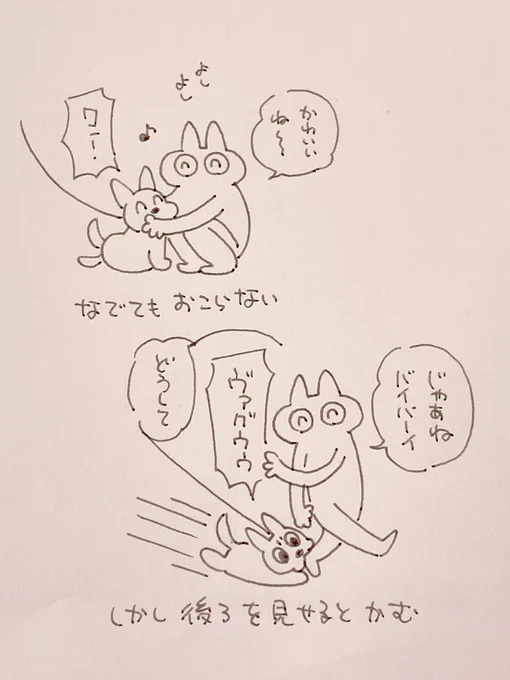 よし
よし
かわいい
ね〜
ワニー!
なでても おこらない
じゃあね
バイバーイ
ヴァゥゥゥ
どうして
しかし 後ろを見せるとかむ